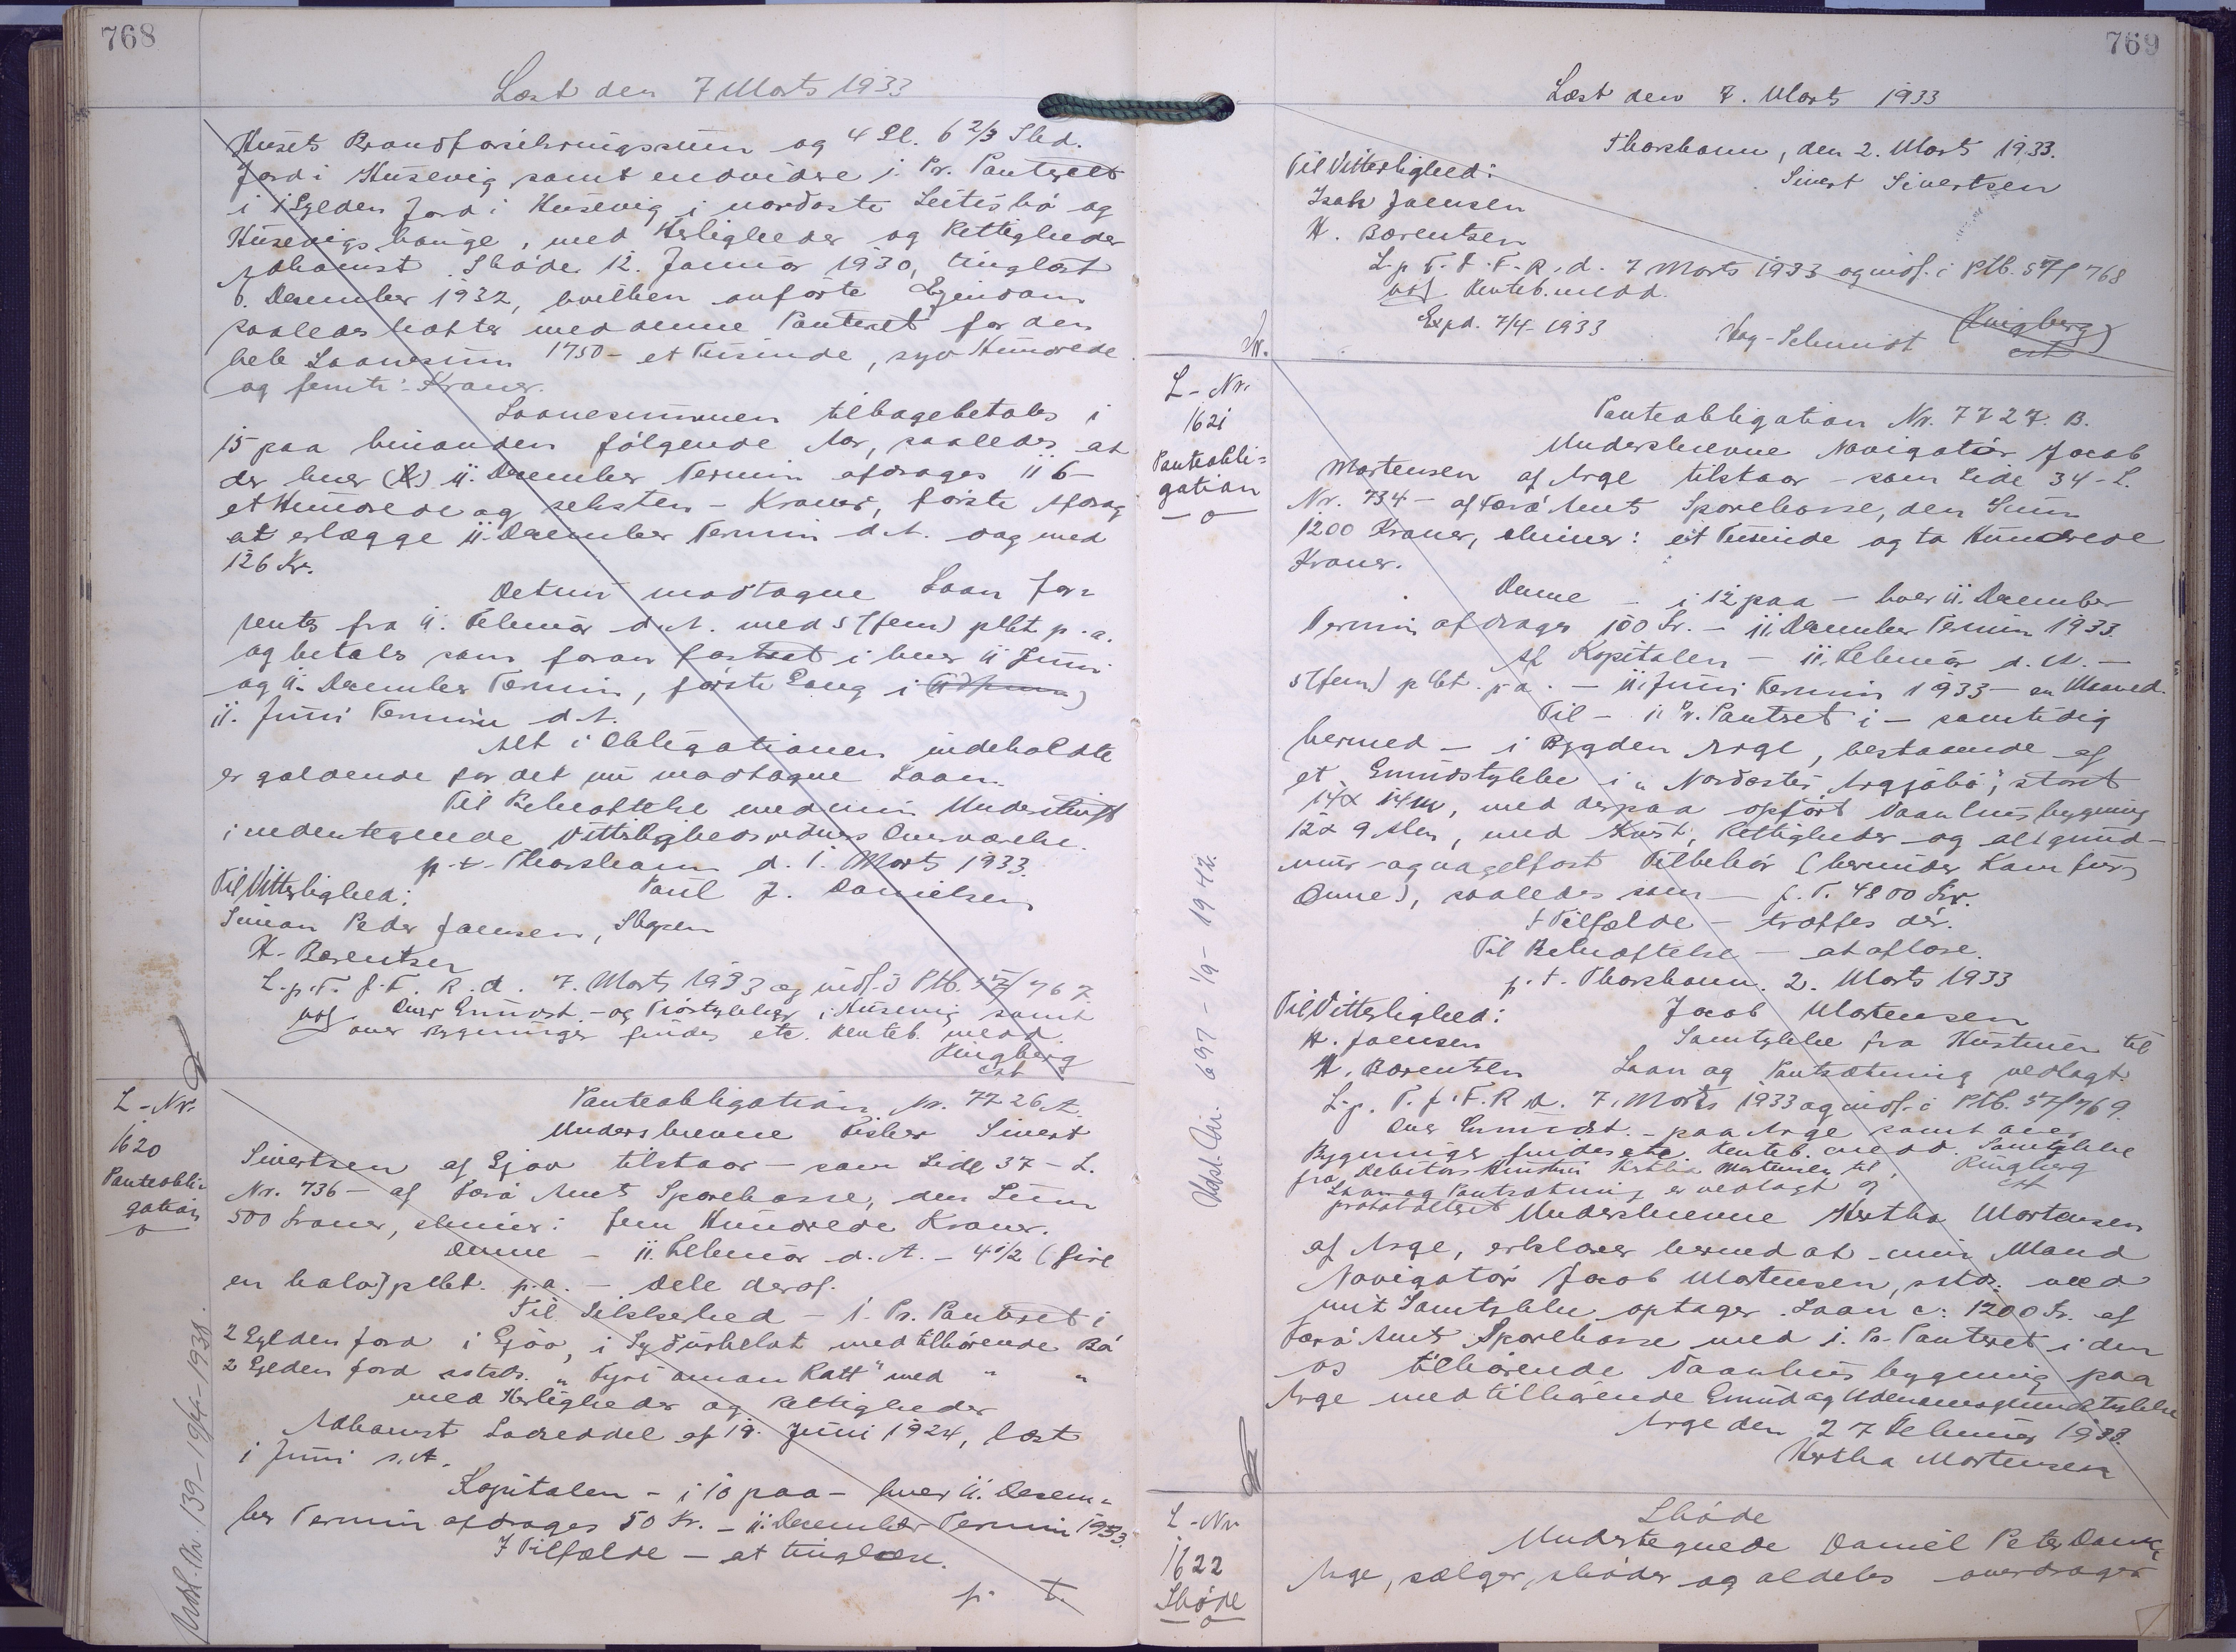 768
Læst den 7 Marts 1933
Husets Brandforsikringssum og 4 Gl. 6 2/3 Skd.
Jord i Husevig, samt endvidere i 1. Pr. Panteret
i 1 Gylden Jord i Husevig i nordoste Leitisbø og
Husevigs hauge, med Herligheder og Rettigheder
Adkomst Skøde 12. Januar 1930, tinglæst
6. December 1932, hvilken anførte Ejendom
saaledes hæfter med denne Panteret for den
hele Laanesum 1750 - et Tusinde, syv Hundrede
og femti - Kroner.
Laanesummen tilbagebetales i
15 paa hinanden følgende Aar, saaledes at
der hver 11. December Termin afdrages 116 -
et Hundrede og seksten - Kroner, første Afdrag
at erlægge 11. December Termin d. A. dog med
126 Kr.
Det nu modtagne Laan for-
rentes fra 11. Februar d. A. med 5 (fem) pCt. p. a.
og betales som foran fastsat i hver 11 Juni
og 11. December Termin, første Gang i
11. Juni Termin d. A.
Alt i Obligationen indeholdte
er gældende for det nu modtagne Laan.
Til Bekræftelse med min Underskrift
i undertegnede Vitterlighedsvidners Overværelse.
p. t. Thorshavn d. 1. Marts 1933.
Til Vitterlighed: Poul J. Danielsen
Simon Peder Joensen, Skopen
H. Børentsen
L. p. T. f. F. R. d. 7. Marts 1933 og indf. i Ptb. 57/767.
Over Grundst. - og Tiørstykker i Husevig samt
over Bygninger findes etc. Renteb. medd.
Ringberg
cst
L - Nr.
1620
Panteobli-
gation
Panteobligation Nr. 7726 A.
Underskrevne Fisker Sivert
Sivertsen af Gjov tilstaar - som Side 37 - L.
Nr. 736 - af Færø Amts Sparekasse, den Sum
500 Kroner, skriver: fem Hundrede Kroner.
Denne - 11. Februar d. A. - 4 1/2 (fire
en halv) pCt. p. a. - dele deraf.
Til Sikkerhed - 1. Pr. Panteret i
2 Gylden Jord i Gjov, i Sydurhelvt med tilhørende Bø
2 Gylden Jord sstds. "Fyri oman Ratt" med " "
med Herligheder og Rettigheder
Adkomst Lodseddel af 19. Juni 1924, læst
i Juni s. A.
Kapitalen - i 10 paa - hver 11. Decem-
ber Termin afdrages 50 Kr. - 11. December Termin 1933.
I Tilfælde - at tinglæse.
p. t.
Udsl. Nr. 139 - 19/4 - 1938.
769
Læst den 7. Marts 1933
Thorshavn, den 2. Marts 1933.
Til Vitterlighed: Sivert Sivertsen
Isak Joensen
H. Børentsen
L. p. T. f. F. R. d. 7 Marts 1933 og indf. i Ptb. 57/768
Renteb. medd.
Expd. 7/4 - 1933 Hog-Schmidt (Ringberg)
cst
L - Nr.
1621
Panteobli-
gation
Panteobligation Nr. 7727. B.
Underskrevne Navigatør Jacob
Mortensen af Arge tilstaar - som Side 34 - L.
Nr. 734 - af Færø Amts Sparekasse, den Sum
1200 Kroner, skriver: et Tusinde og to Hundrede
Kroner.
Denne - i 12 paa - hver 11. December
Termin afdrages 100 Kr. - 11. December Termin 1933.
Af Kapitalen - 11. Februar d. A. -
5 (fem) pCt. p. a. - 11. Juni Termin 1933 - en Maaned.
Til - 1. Pr. Panteret i - samtidig
hermed - i Bygden Arge, bestaaende af
et Grundstykke i "Nordastes Argjabø", stort
14 x 14 m, med derpaa opført Vaanhusbygning
12 x 9 Alen, med Kunst, Rettigheder og alt grund-
mur - og nagelfast Tilbehør (herunder Komfur,
Ovne), saaledes som - f. T. 4800 Kr.
I Tilfælde - træffes dér.
Til Bekræftelse - at aflæse.
p. t. Thorshavn. 2. Marts 1933
Til Vitterlighed: Jacob Mortensen
H. Joensen Samtykke fra Hustruen til
H. Børentsen Laan og Pantsætning vedlagt.
L. p. T. f. F. R. d. 7. Marts 1933 og indf. i Ptb. 57/769.
Over Grundst. - paa Arge samt over
Bygninger findes etc. Renteb. medd. Samtykke
fra Debitors Hustru Hertha Mortensen til Ringberg
Laan og Pantsætning er vedlagt og cst
protokolleret Underskrevne Hertha Mortensen
af Arge, erklærer hermed at min Mand
Navigatør Jacob Mortensen, sstds. med
mit Samtykke optager Laan c: 1200 Kr. af
Færø Amts Sparekasse med 1. Pr. Panteret i den
os tilhørende Vaanhusbygning paa
Arge med tilhørende Grund og Udenomsgrundstykke
Arge den 27 Februar 1933.
Hertha Mortensen
Udsl. Nr. 697 - 1/9 - 1942.
L - Nr
1622
Skøde
Skøde
Undertegnede Daniel Peter Dam,
Arge, sælger, skøder og aldeles overdrager